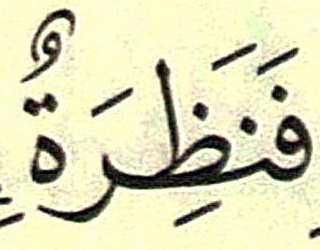 فَنَظِرَةٌ